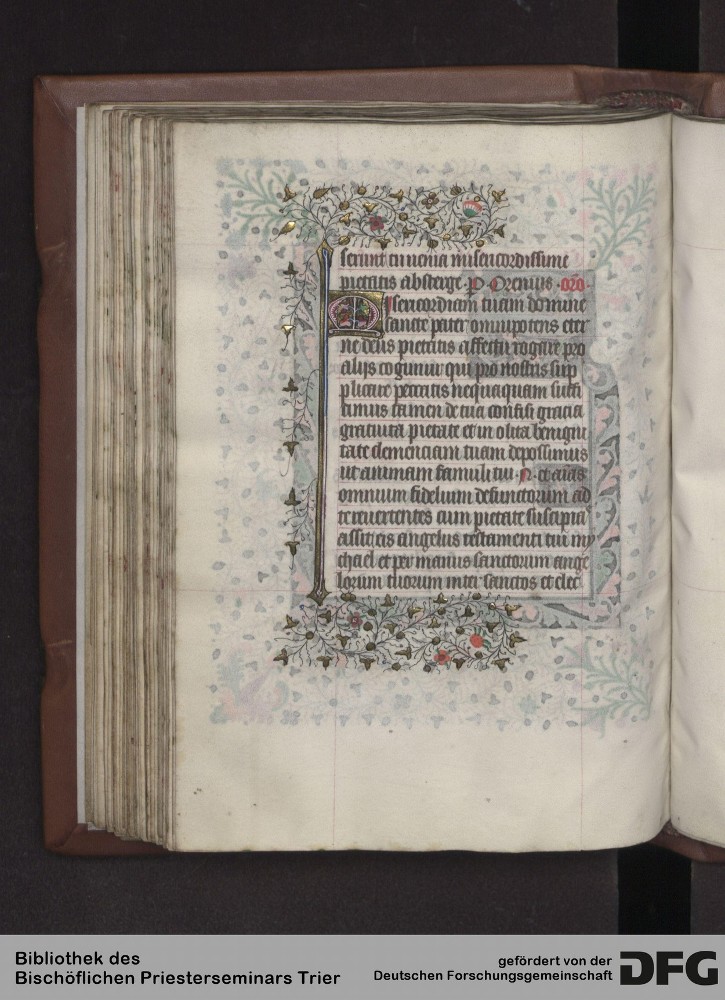 serunt tu uenia misericordissime
pietatis absterge · p · Oremus · oro
Misericordiam tuam domine
sancte pater omnipotens eter
ne deus pietatis affectu rogare pro
alijs cogimur qui pro nostris sup
plicare peccatis nequaquam suffi
cimus tamen de tua confisi gracia
gratuita pietate et in olita benigni
tate clemenciam tuam depossimus
ut animam famuli tui · N · et aīas
omnium fidelium defunctorum ad
te reuertentes cum pietate suscipias
assit eis angelus testamenti tui mi
chael et per manus sanctorum ange
lorum tuorum inter sanctos et elec
Bibliothek des
Bischöflichen Priesterseminars Trier
gefördert von der
Deutschen Forschungsgemeinschaft
DFG